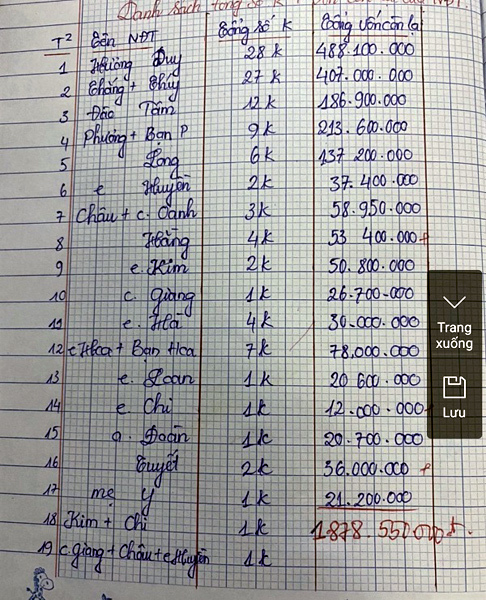 Danh sách tổng số K
T² Tên NĐT Tổng số K Tổng vốn còn lại
1 Hương Duy 28 K 488.100.000
2 Thắng + Thúy 27 K 407.000.000
3 Đào Tâm 12 K 186.900.000
4 Phương + Bạn P 9 K 213.600.000
5 Long 6 K 137 200.000
6 e Huyền 2 K 37.400.000
7 Châu + c. Oanh 3 K 58.950.000
8 Hằng 4 K 53 400.000
9 e. Kim 2 K 50.800.000
10 c. Giang 1 K 26.700.000
11 e. Hà 4 K 30.000.000
12 c Hoa + Bạn Hoa 7 K 78.000.000
13 e. Loan 1 K 20 600.000
14 e. Chi 1 K 12.000.000
15 a. Đoàn 1 K 20.700.000
16 Tuyết 2 K 36.000.000
17 mẹ Y 1 K 21.200.000
18 Kim + Chi 1 K 1878.550000đ.
19 c. Giang + Châu + e Huyền 1 K
Trang
xuống
Lưu